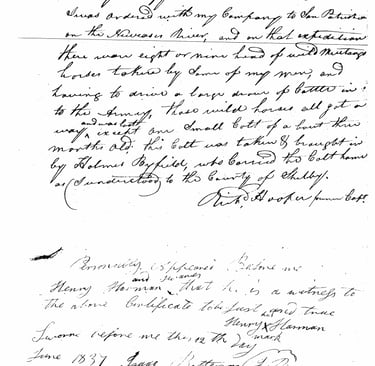 I was ordered with my Company to San Patricio
on the Nueases River, and on that expedition
there were eight or nine head of wild Mustangs
horses taken by Some of my men, and
having to drive a large drove of Cattle in
to the Army, those wild horses all got a
and was lost
way ^ except one Small Colt of a bout three
months old. this Colt was taken & brought in
by Holmes, who Carried the Colt home
as (I understood) to the County of Shelby.
Richd. Hooper former Capt.
Personally appeared Before me
and swares
Henry Harman that h. is a witness to
the above Certificate to be Just and true
his
Henry X Harman
mark
Sworne before me this 12 th day
June 1837